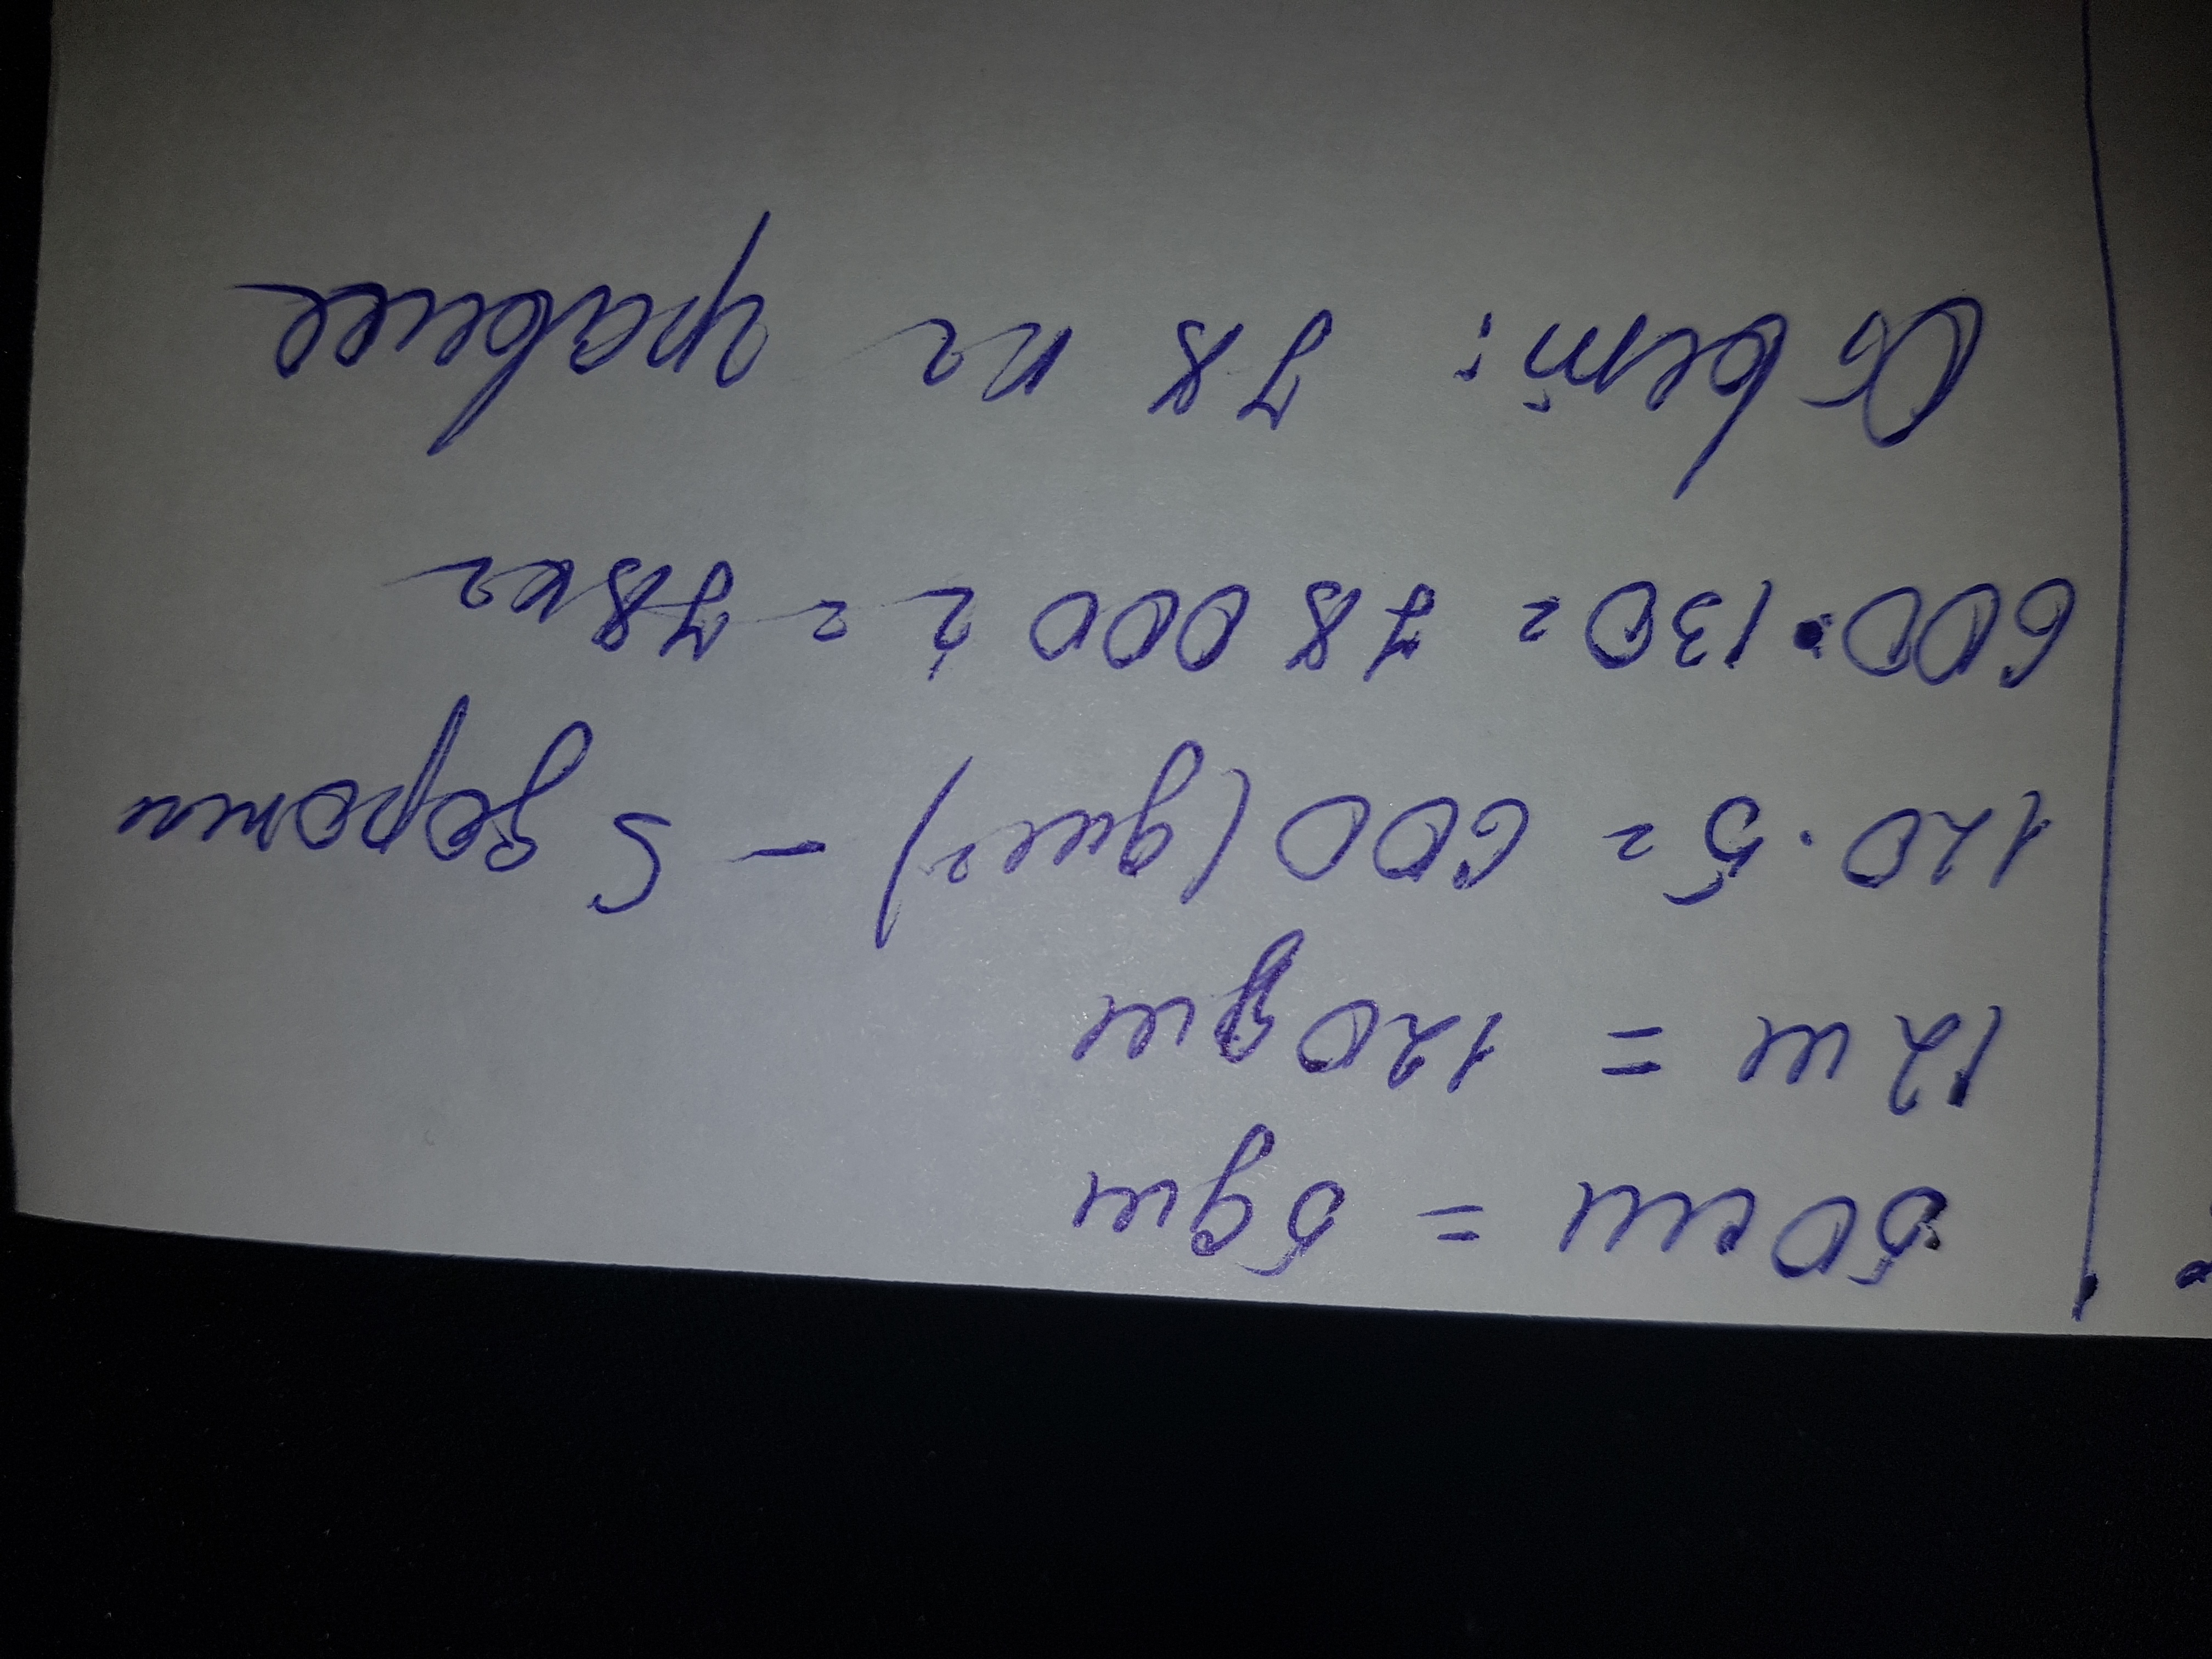 50см = 5дм
12м = 120дм
120·5= 600(дм²) - S дорожки
600·130= 78 000 г = 78кг
Ответ: 78 кг гравия